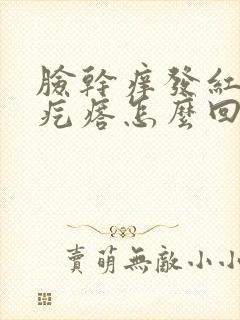 臉幹癢發紅
疙瘩怎麼回
賣萌無敵小小